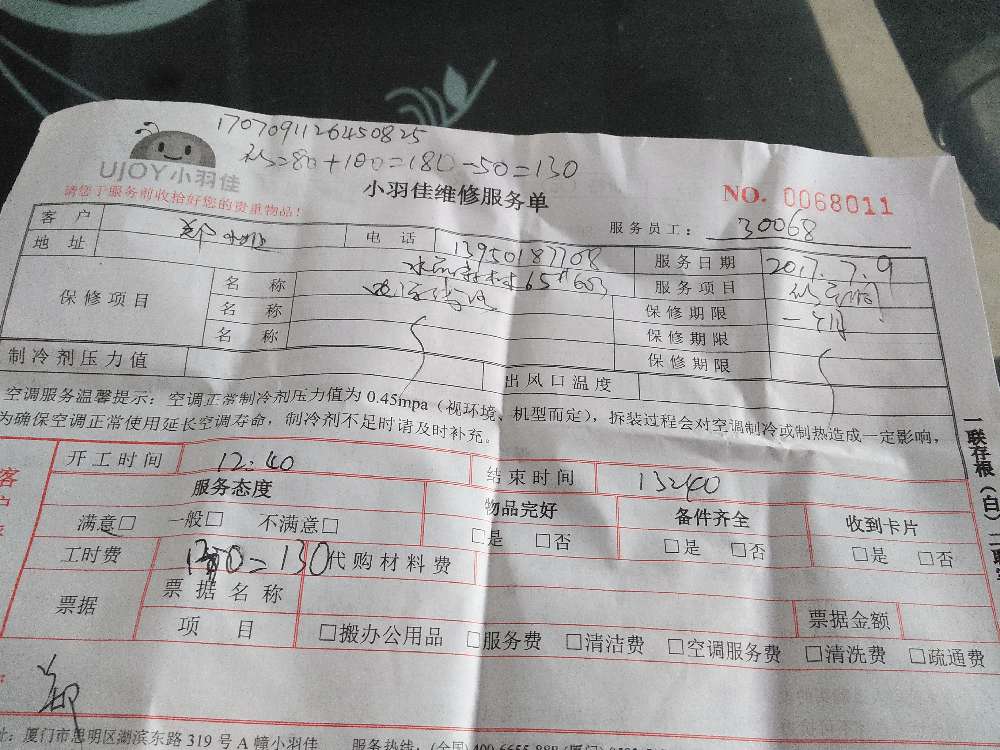 1707091126450825
=80+100=180-50=130
UJOY小羽佳
小羽佳维修服务单
NO. 0068011
请您于服务前收拾好您的贵重物品!
服务员工: 30068
客户 郑 电话 13950187708 服务日期 2017.7.9
地址 603 服务项目
保修项目 名称 保修期限 一个月
名称 保修期限
名称 保修期限
制冷剂压力值 出风口温度
空调服务温馨提示:空调正常制冷剂压力值为0.45mpa(视环境、机型而定),拆装过程会对空调制冷或制热造成一定影响,
为确保空调正常使用延长空调寿命,制冷剂不足时请及时补充。
一联存根(白)二联
客户
开工时间 12:40 结束时间 13:40
服务态度 物品完好 备件齐全 收到卡片
满意□ 一般□ 不满意□ □是 □否 □是 □否 □是 □否
工时费 =130 代购材料费
票据 票据名称 票据金额
项目 □搬办公用品 □服务费 □清洁费 □空调服务费 □清洗费 □疏通费
郑
址:厦门市思明区湖滨东路319号A幢小羽佳 服务热线:(全国)400-6655-888(厦门)